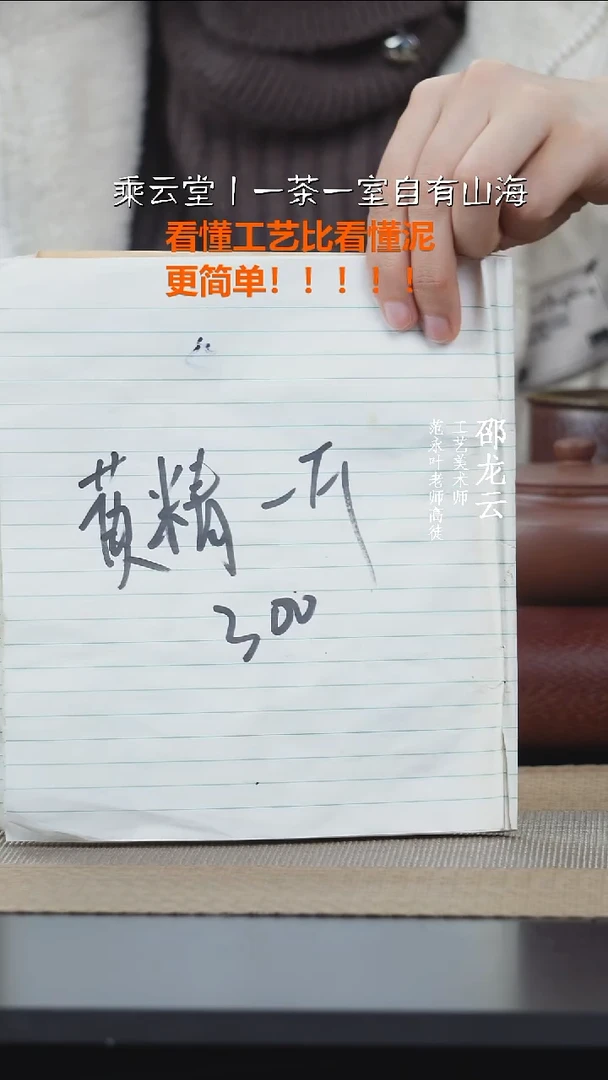 乘云堂丨一茶一室自有山海
看懂工艺比看懂泥
更简单！！！！！
邵龙云
工艺美术师
范永叶老师高徒
黄精一斤
300